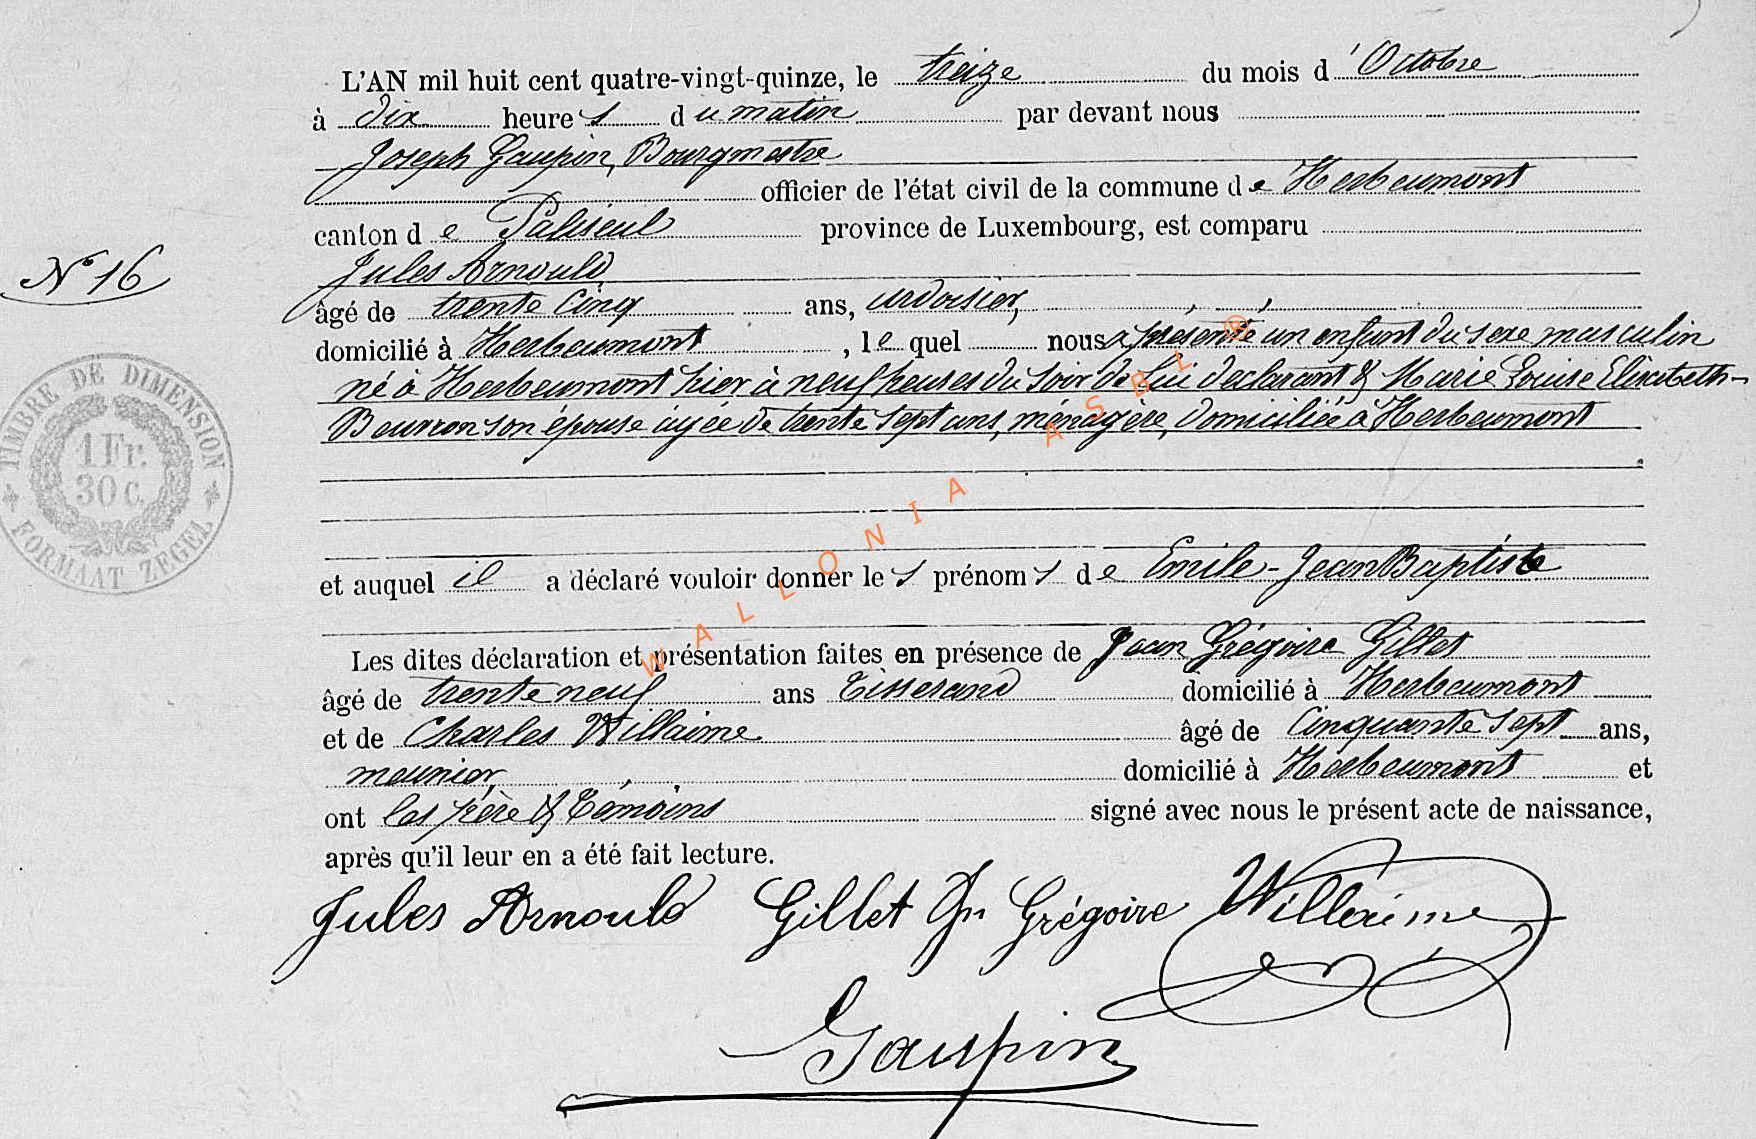 L'AN mil huit cent quatre-vingt-quinze, le treize du mois d'Octobre
à dix heures du matin par devant nous
Joseph Gaupin, Bourgmestre
officier de l'état civil de la commune de Herbeumont
canton de Paliseul province de Luxembourg, est comparu
Jules Arnould
N° 16
âgé de trente cinq ans, ardoisier,
domicilié à Herbeumont, lequel nous a présenté un enfant du sexe masculin
né à Herbeumont hier à neuf heures du soir de lui declarant & Marie Louise Elisabeth
Bourron son épouse âgée de trente sept ans, ménagère, domiciliée à Herbeumont
TIMBRE DE DIMENSION
1 Fr.
30 c.
FORMAAT ZEGEL
et auquel il a déclaré vouloir donner les prénoms de Emile-Jean Baptiste
Les dites déclaration et présentation faites en présence de Jean Grégoire Gillet
âgé de trente neuf ans Tisserand domicilié à Herbeumont
et de Charles Willaime âgé de Cinquante sept ans,
meunier, domicilié à Herbeumont et
ont les père & Témoins signé avec nous le présent acte de naissance,
après qu'il leur en a été fait lecture.
Jules Arnould Gillet Jn Grégoire Willaime
Gaupin
WALLONIA ASBL ®